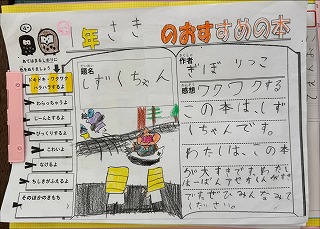 年 さき のおすすめの本
あてはまるしおりに
色をぬりましょう
ドキドキ・ワクワク
ハラハラするよ
わらっちゃうよ
じーんとするよ
びっくりするよ
こわいよ
なけるよ
ちしきがふえるよ
そのほかのきもち
題名
しずくちゃん
作者
ぎぼ りつこ
感想 ワクワクする
この本は、しず
くちゃんです。
わたしは、この本
が大すきです。
ですぜひみんなみて
ください。